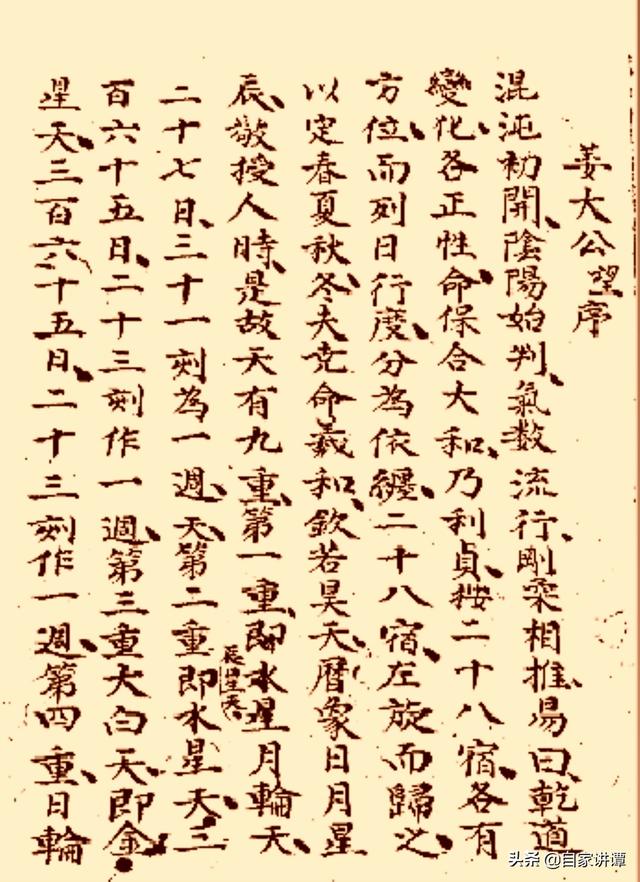 姜大公望序
混沌初開、陰陽始判、氣数流行、剛柔相推、易曰、乾道
變化、各正性命、保合大和、乃利貞、按二十八宿、各有
方位、而列日行度、分為依纏、二十八宿、左旋而歸之、
以定春夏秋冬、夫堯命羲和、欽若昊天、曆象日月星
辰、敬授人時、是故天有九重、第一重、即水星月輪天、
辰星天
二十七日、三十一刻為一週、天、第二重即水星天、三
百六十五日、二十三刻作一週、第三重大白天、即金
星天、三百六十五日、二十三刻作一週、第四重、日輪
头条 @自家讲谭